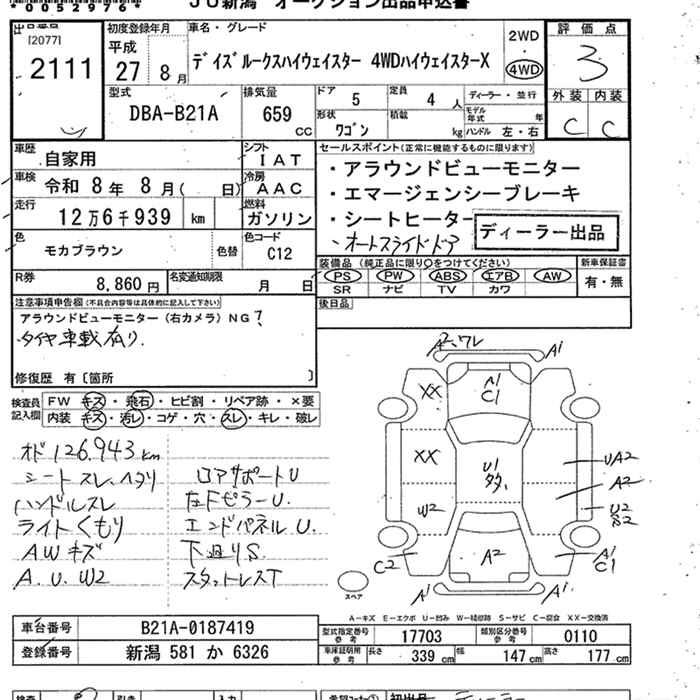 0052976
JU新潟 オークション出品申込書
出品番号
[2077]
2111
初度登録年月
平成
27年 8月
車名・グレード
デイズルークスハイウェイスター 4WDハイウェイスターX
2WD
・
4WD
評価点
3
外装 内装
C C
型式
DBA-B21A
排気量
659
CC
ドア
5
定員
4 人
形状
ワゴン
積載
kg
ディーラー・並行
モデル年式 年
ハンドル 左・右
車歴
自家用
シフト
IAT
車検
令和 8年 8月( 日)
冷房
AAC
走行
12万6千939 km
燃料
ガソリン
色
モカブラウン
色替
色コード
C12
R券
8,860円
名変通知期限
月 日
セールスポイント(正常に機能するものに限ります)
・アラウンドビューモニター
・エマージェンシーブレーキ
・シートヒーター
・オートスライドドア
ディーラー出品
装備品(純正品に限り○をつけてください)
PS PW ABS エアB AW
SR ナビ TV カワ
新車保証書
有・無
後日品
注意事項申告欄(不具合内容等は具体的に記入して下さい)
アラウンドビューモニター(右カメラ)NG?
タイヤ車載有り.
修復歴 有〔箇所 〕
検査員記入欄
FW キズ・飛石・ヒビ割・リペア跡・×要
内装 キズ・汚レ・コゲ・穴・スレ・キレ・破レ
オド126,943km
シートスレ、ヘタリ
ハンドルスレ
ライトくもり
AWキズ
A.U.W2
ロアサポートU
左Fピラー U.
エンドパネル U.
下廻りS
スタットレスT
A2、ワレ
A1
XX
A1
C1
XX
U1
多.
UA2
A2
W2
U2
S2
C2
A2
A1
C1
A1
A1
スペア
A-キズ E-エクボ U-凹み W-補修跡 S-サビ C-腐食 XX-交換済
車台番号
B21A-0187419
登録番号
新潟 581 か 6326
型式指定番号
参考
17703
類別区分番号
参考
0110
車庫証明用
参考
長さ
339 cm
幅
147 cm
高さ
177 cm